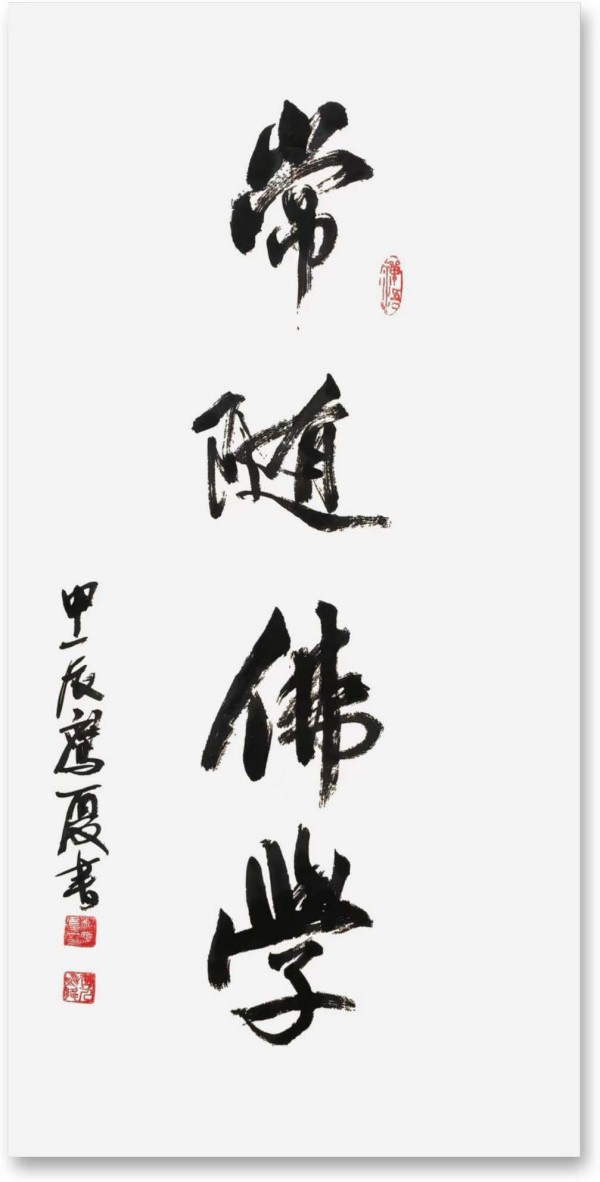 常随佛學
甲辰鹰夏书